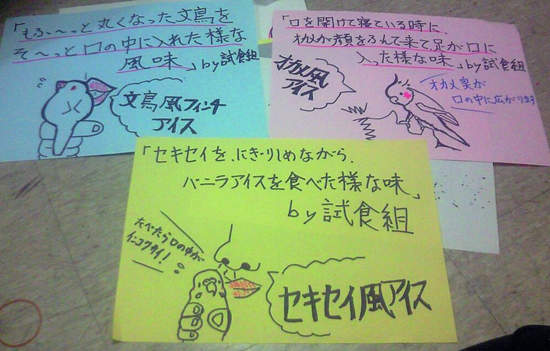 「もふ〜っと丸くなった文鳥を
そ〜っと口の中に入れた様な
風味」by試食組
文鳥風フィンチ
アイス
「口を開けて寝ている時に、
オカメが顔をふんで来て足が口に
入った様な味」by試食組
オカメ風
アイス
オカメ臭が
口の中に広がります
「セキセイを、にぎりしめながら、
バニラアイスを食べた様な味」
by試食組
たべたら口の中が
インコクサイ!
セキセイ風アイス